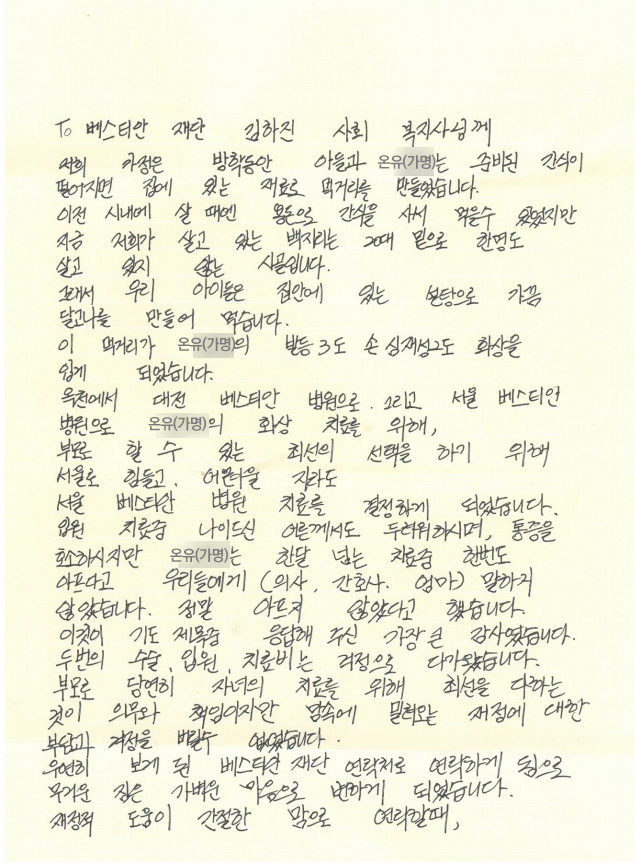 To 베스티안 재단 김하진 사회 복지사님께
저희 가정은 방학동안 아들과 온유(가명)는 준비된 간식이
떨어지면 집에 있는 재료로 먹거리를 만들었습니다.
이전 시내에 살 때엔 용돈으로 간식을 사서 먹을수 있었지만
지금 저희가 살고 있는 백지리는 20대 밑으로 한명도
살고 있지 않는 시골입니다.
그래서 우리 아이들은 집안에 있는 설탕으로 가끔
달고나를 만들어 먹습니다.
이 먹거리가 온유(가명)의 발등 3도 손 심재성2도 화상을
입게 되었습니다.
옥천에서 대전 베스티안 병원으로. 그리고 서울 베스티안
병원으로 온유(가명)의 화상 치료를 위해,
부모로 할 수 있는 최선의 선택을 하기 위해
서울로 힘들고, 어려움을 지라도
서울 베스티안 병원 치료를 결정하게 되었습니다.
입원 치료중 나이드신 어른께서도 두려워하시며, 통증을
호소하시지만 온유(가명)는 한달 넘는 치료중 한번도
아프다고 우리들에게 (의사, 간호사. 엄마) 말하지
않았습니다. 정말 아프지 않았다고 했습니다.
이것이 기도 제목중 응답해 주신 가장 큰 감사였습니다.
두번의 수술, 입원, 치료비는 걱정으로 다가왔습니다.
부모로 당연히 자녀의 치료를 위해 최선을 다하는
것이 의무와 책임이지만 맘속에 밀려오는 재정에 대한
부담과 걱정을 버릴수 없었습니다.
우연히 보게 된 베스티안 재단 연락처로 연락하게 됨으로
무거운 짐은 가벼운 마음으로 변하게 되었습니다.
재정적 도움이 간절한 맘으로 연락할때,